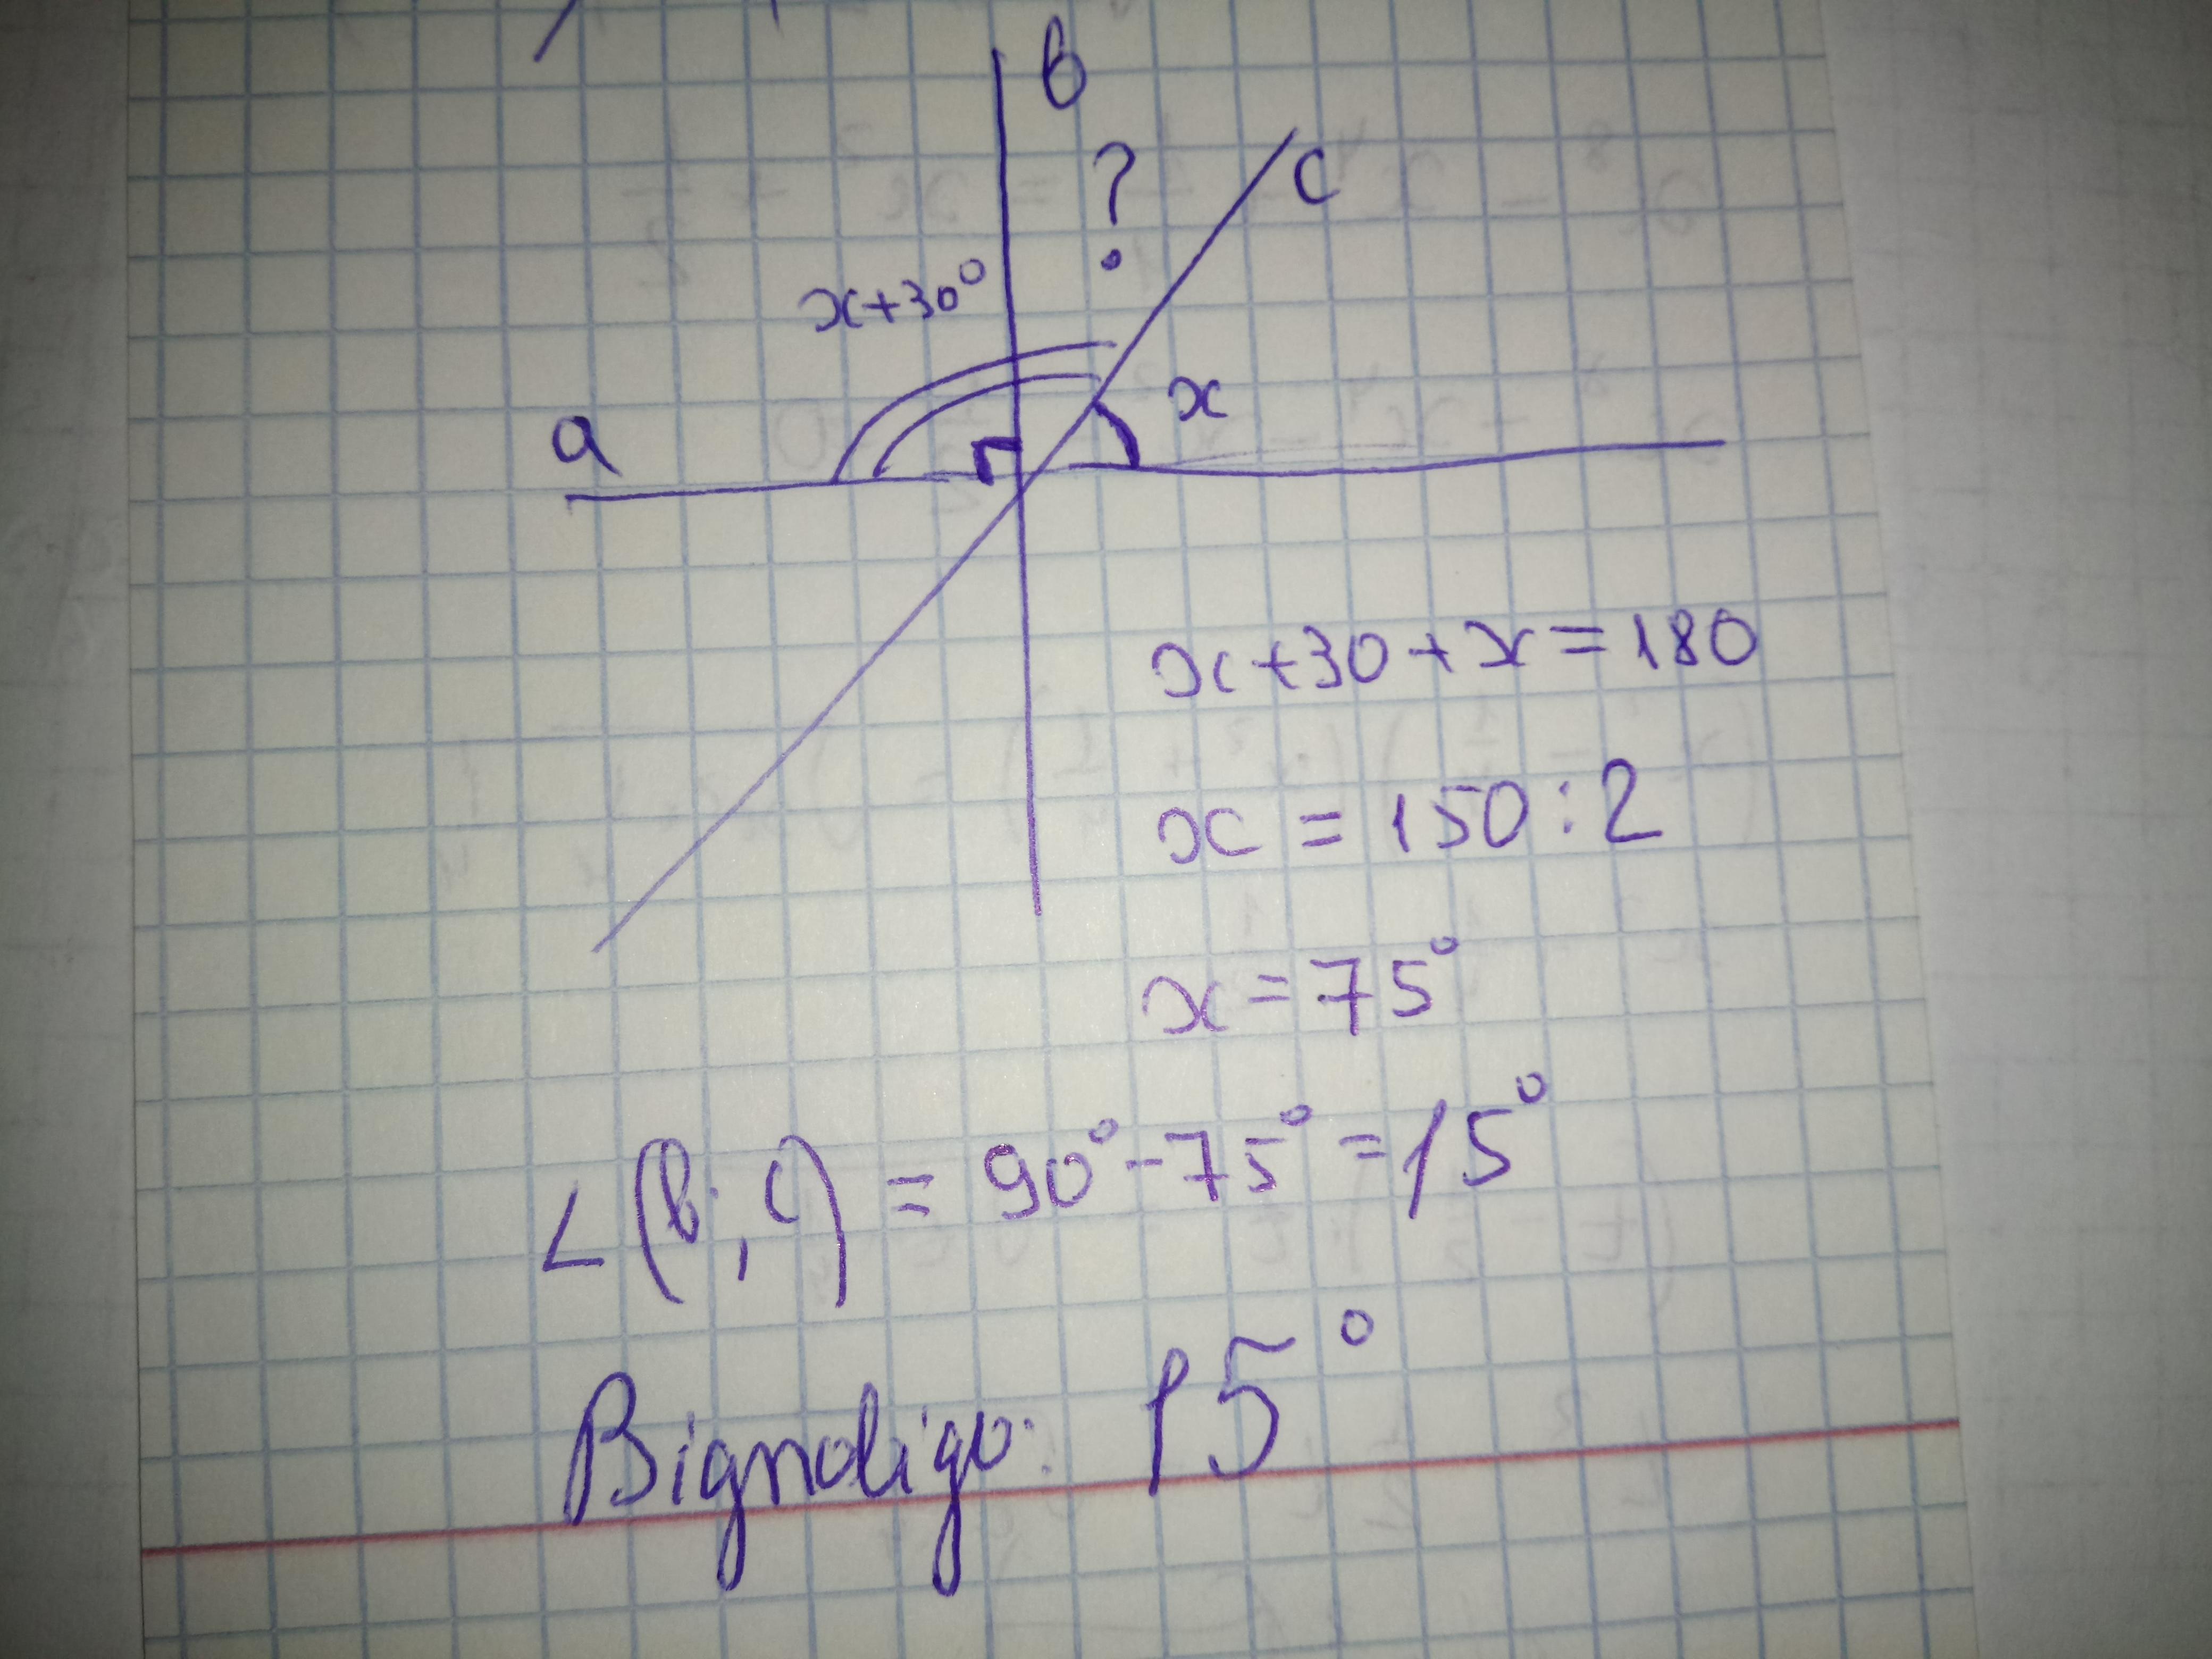 b
?
c
x+30°
a
x
x+30+x=180
x = 150:2
x=75°
∠(b; c) = 90°-75°=15°
Відповідь: 15°